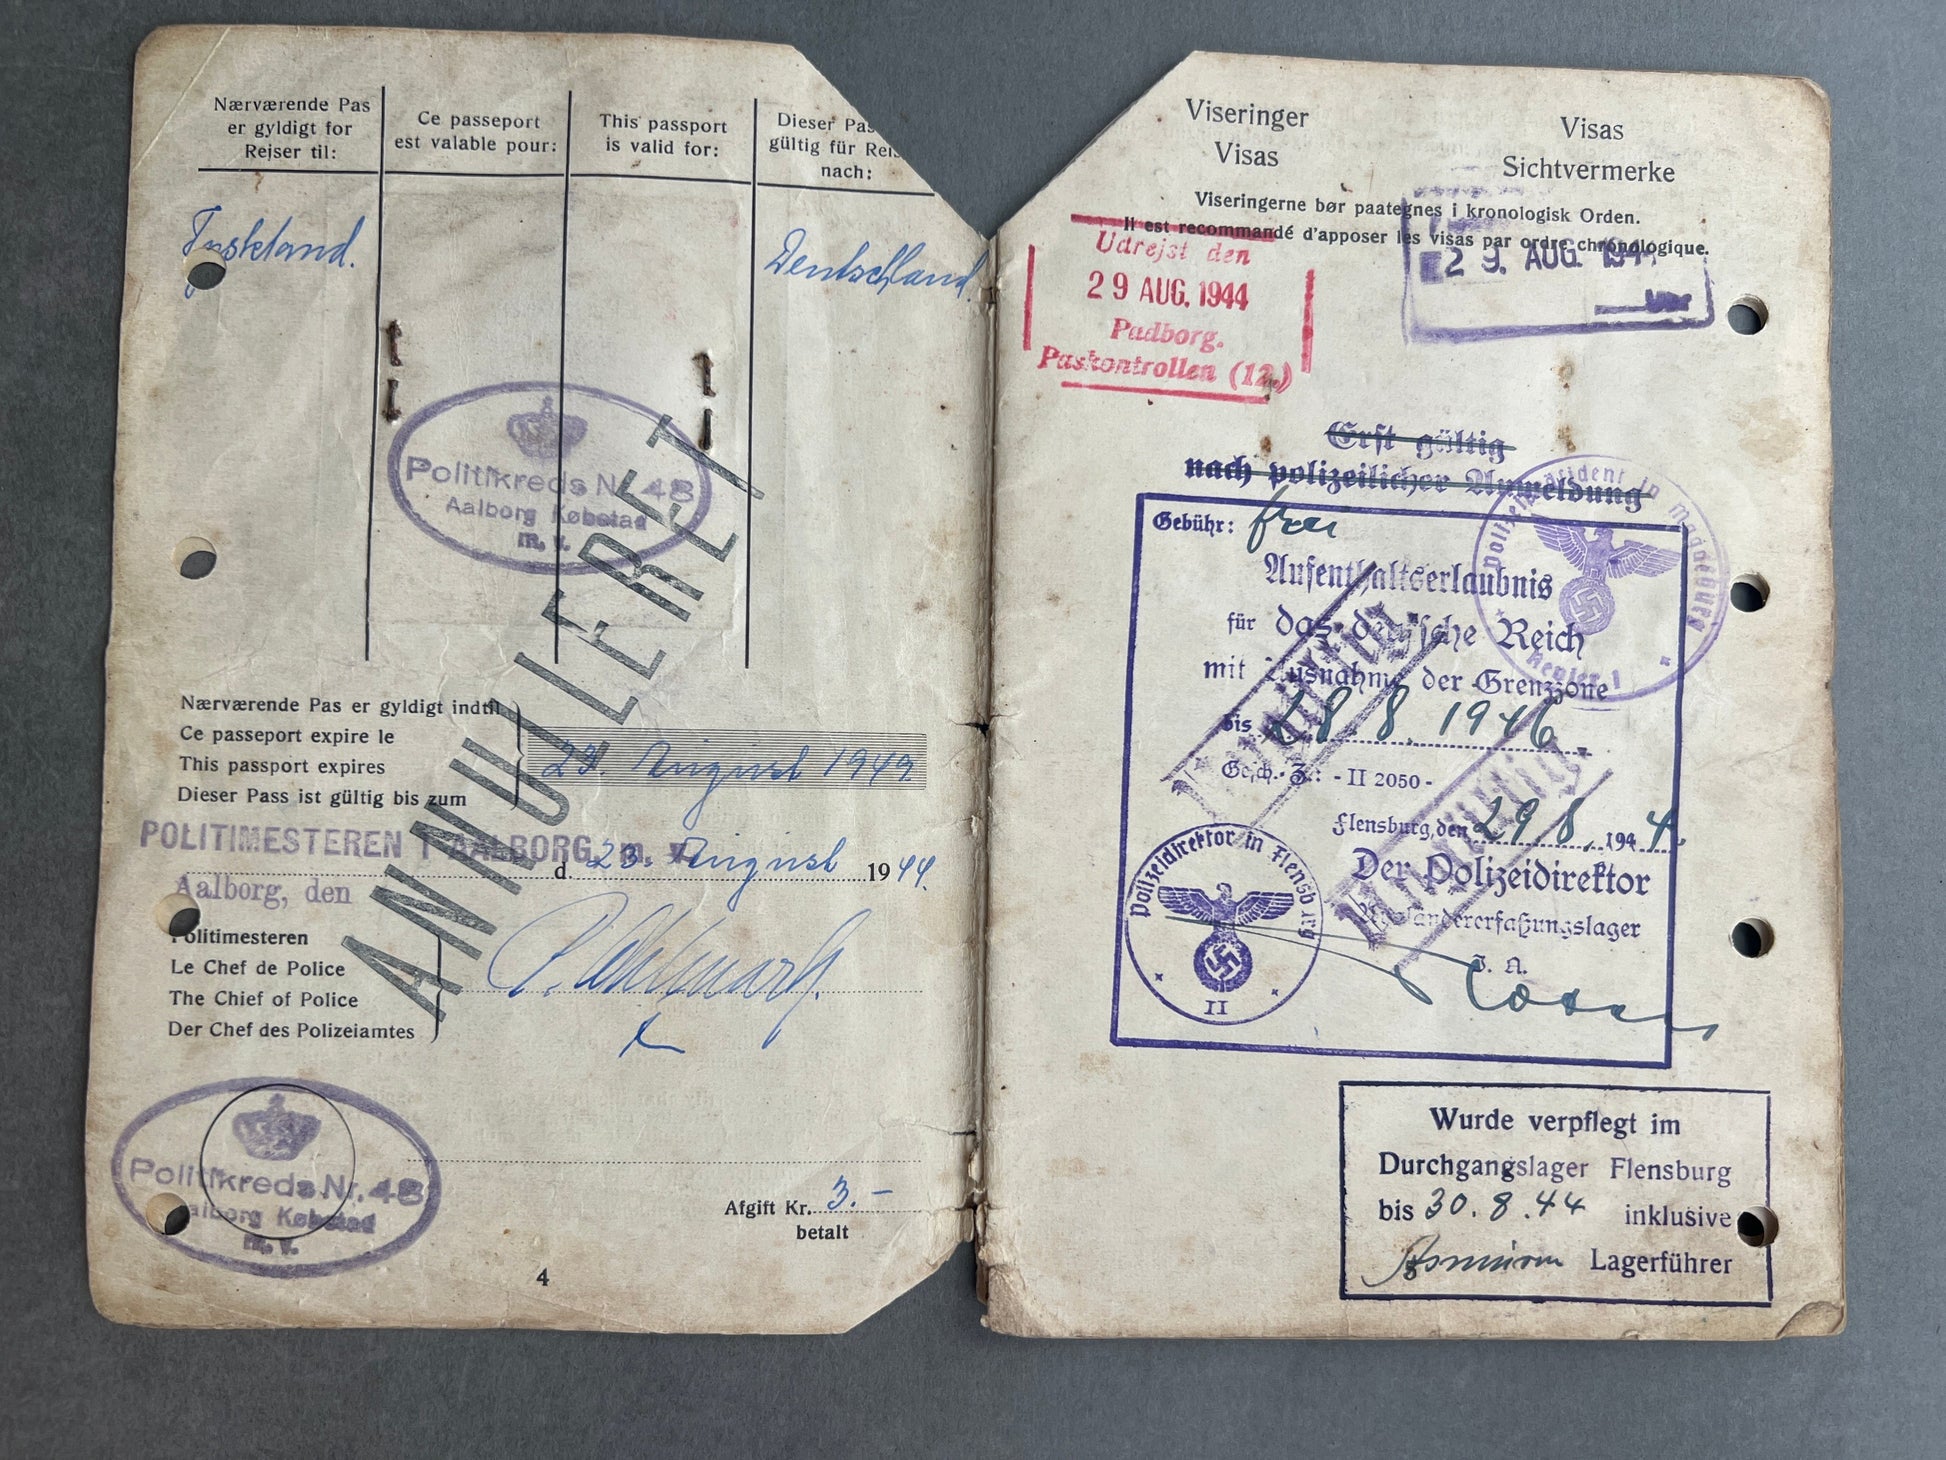 Nærværende Pas
er gyldigt for
Rejser til:
Ce passeport
est valable pour:
This passport
is valid for:
Dieser Pas
gültig für Reis
nach:
Tyskland.
Deutschland.
Politikreds Nr. 48
Aalborg Købstad
m. v.
ANNULLERET
Nærværende Pas er gyldigt indtil
Ce passeport expire le
This passport expires
Dieser Pass ist gültig bis zum
23. August 1949
POLITIMESTEREN I AALBORG m. v.
d. 23. August 1944.
Aalborg, den
Politimesteren
Le Chef de Police
The Chief of Police
Der Chef des Polizeiamtes
Politikreds Nr. 48
Aalborg Købstad
m. v.
Afgift Kr. 3.-
betalt
4
Viseringer
Visas
Visas
Sichtvermerke
Viseringerne bør paategnes i kronologisk Orden.
Il est recommandé d'apposer les visas par ordre chronologique.
Udrejst den
29 AUG. 1944
Padborg.
Paskontrollen (12.)
29. AUG. 1944
Uhr
Erst gültig
nach polizeilicher Anmeldung
Gebühr: frei
Polizeipräsident in Magdeburg
Revier 1
Aufenthaltserlaubnis
für das deutsche Reich
mit Ausnahme der Grenzzone
bis 28.8.1946
Gesch.-Z.: - II 2050 -
Flensburg, den 29.8. 1944.
Der Polizeidirektor
Ausländererfaßungslager
I. A.
Polizeidirektor in Flensburg
II
Ungültig
Ungültig
Wurde verpflegt im
Durchgangslager Flensburg
bis 30.8.44 inklusive
Lagerführer